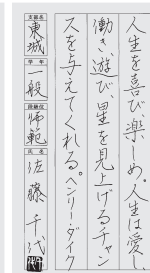 人生を喜び、楽しめ。人生は愛し、
働き、遊び、星を見上げるチャン
スを与えてくれる。ヘンリーダイク
支部名
東城
学年
一般
段級位
師範
氏名
佐藤千代